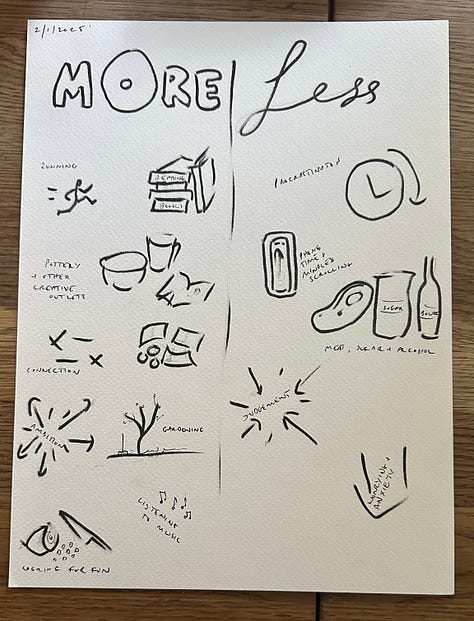 2/1/2025
MORE
Less
RUNNING
READING
BOOKS
PROCRASTINATION
POTTERY
+ OTHER
CREATIVE
OUTLETS
PHONE
TIME +
MINDLESS
SCROLLING
SUGAR
MEAT, SUGAR + ALCOHOL
CONNECTION
AMBITION
GARDENING
JUDGEMENT
LISTENING
TO MUSIC
WORRYING +
ANXIETY
COOKING FOR FUN